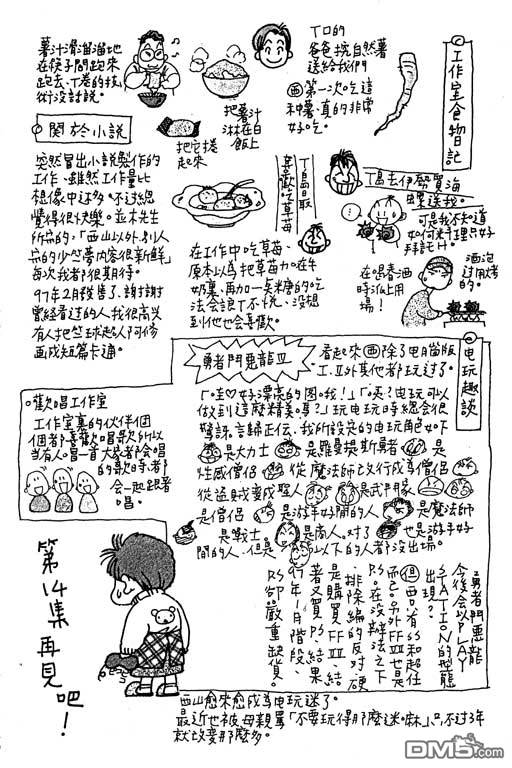 工作室食物日記
丁口的
爸爸挖自然薯
送給我們
西第一次吃這
種薯,真的非常
好吃。
薯汁滑溜溜地
在筷子間跑來
跑去、丁卷的技
術沒話說。
把薯汁
淋在白
飯上
把它捲
起來
丁島去伊勢買海
螺送我。
可是我不知道
如何料理只好
拜託H。
酒泡
过用烤
的。
在喝春酒
時派上用
場!
丁島最
喜歡吃草莓
在工作中吃草莓、
原本以為把草莓加在牛
奶裏、再加一点糖的吃
法会被丁不悦、没想
到他也会喜歡。
關於小說
突然冒出小說製作的
工作、雖然工作量比
想像中还多、不过總
覺得很快樂。並木先生
所寫的,「西山以外,別人
寫的少竺夢內容很新鮮」
每次我都很期待。
97年2月發售了、謝謝
曾經看过的人我很高兴
有人把竺球起人阿修
画成短篇卡通。
歡唱工作室
工作室裏的伙伴個
個都喜歡唱歌所以
当有人唱一首大家都会唱
的歌時,都
会一起跟著
唱。
电玩趣談
勇者鬥惡龍Ⅲ
看起來西除了电腦版
Ⅰ.Ⅱ外其他都玩过了。
「哇♡好漂亮的图哦!」「唉?电玩可以
做到這麼精美嗎?」玩电玩時總会很
驚訝。言歸正伝、我所設定的电玩角色如下
是大力士 是羅曼提斯勇者 是
性感僧侶 從魔法師改行成為僧侶
從盜賊变成聖人 是武鬥家
是僧侶 是游手好閒的人 是魔法師
是戰士 是商人。对了 也是游手好
閒的人、但是 以下的人都沒出場。
勇者鬥惡龍
今後会以PLAY
STATION的型態
出現?
但西只有的和超任
而已。另外FFⅦ也是
P.S。在沒辦法之下
、排除編的反对硬
是購買FFⅦ、結
著又買P.S、結果
97年1月階段、
P.S卻嚴重缺貨。
西山愈來愈成為电玩迷了。
最近也被母親罵「不要玩得那麼迷嘛」。,不过3年
就改变那麼多。
第14集再見吧!
DM5.com